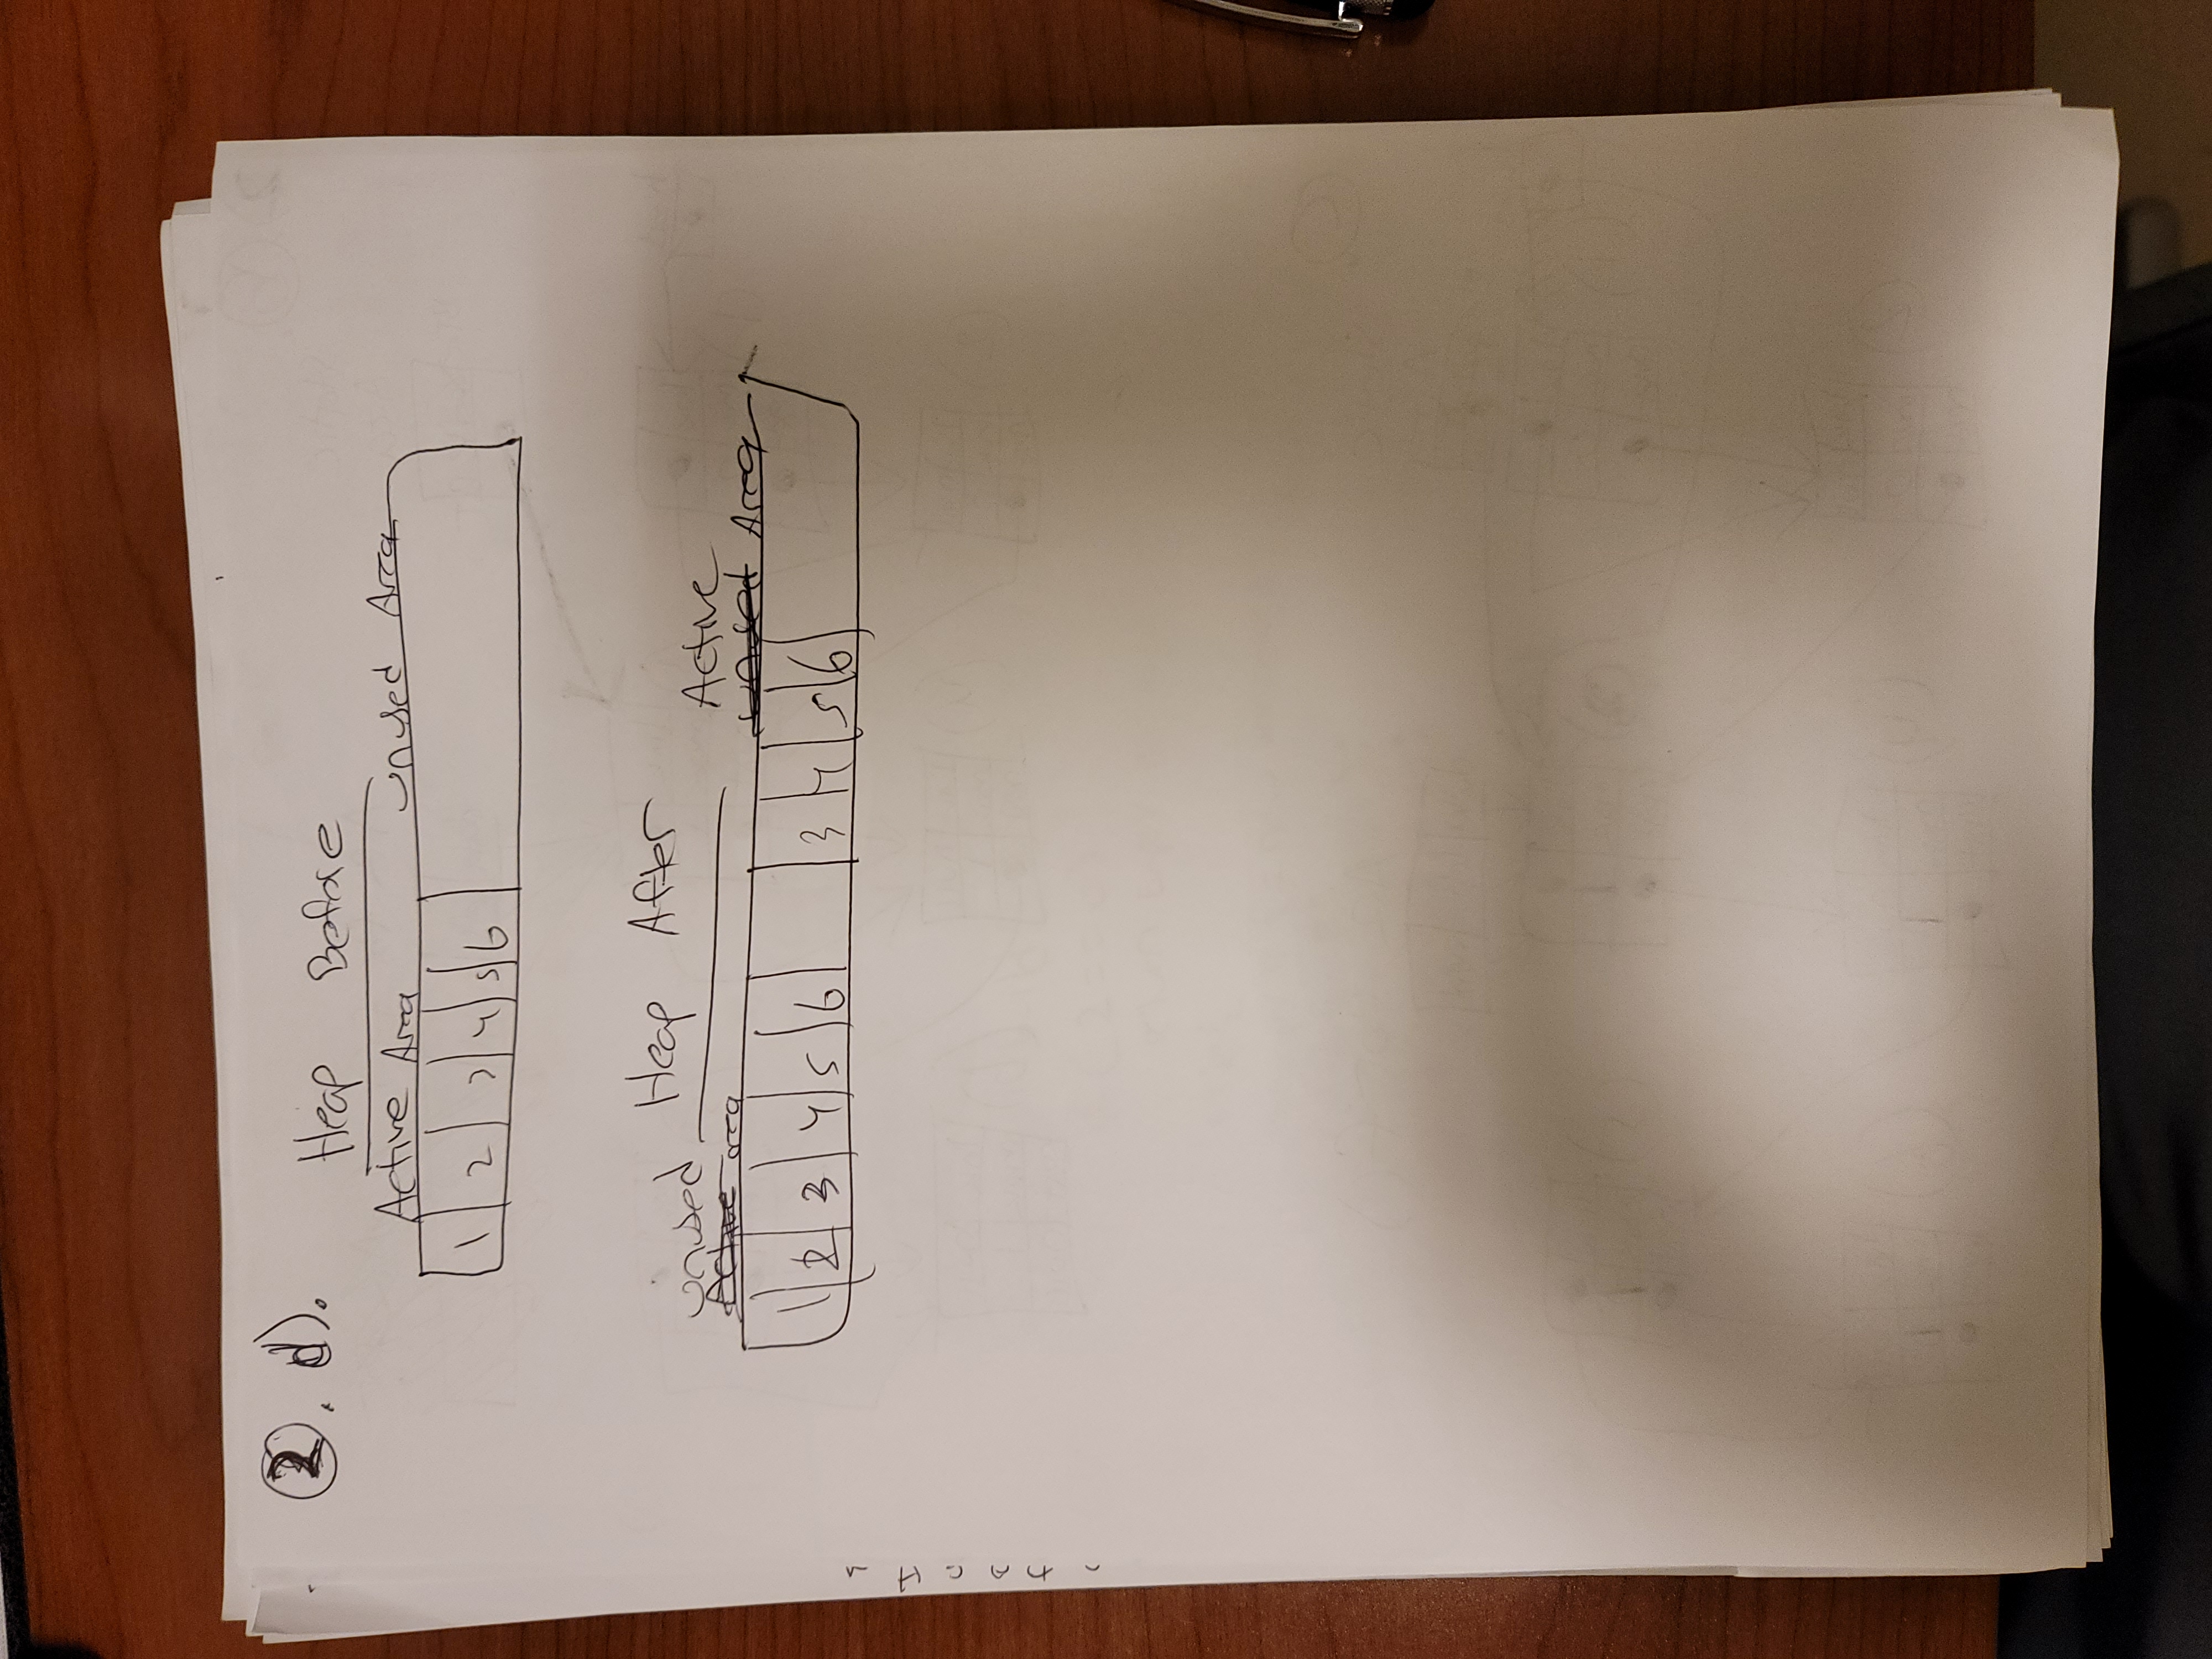 2. d).
Heap Before
Active Area unused Area
1 2 3 4 5 6
Heap After
unused Active
Active area unused Area
1 2 3 4 5 6 3 4 5 6